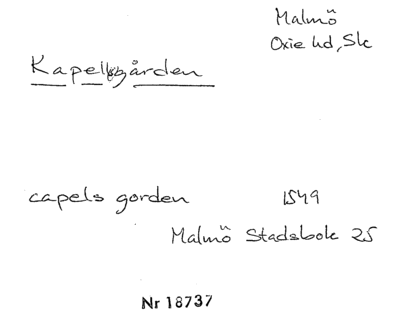 Malmö
Oxie hd, Sk
Kapellsgården
capels gorden 1549
Malmö Stadsbok 25
Nr 18737